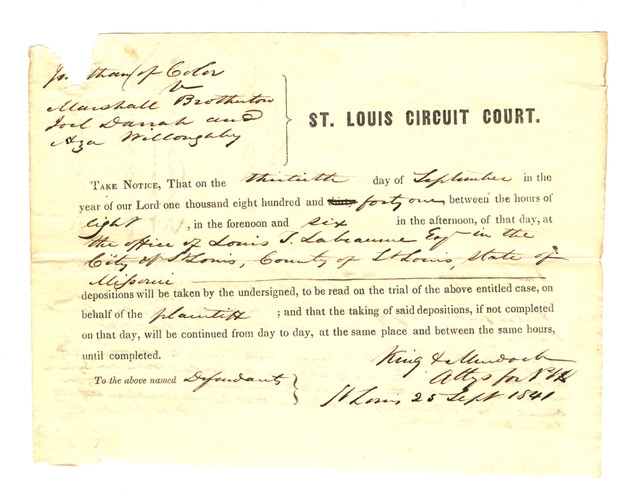 Jonathan (of Color
v
Marshall Brotherton
Joel Darrah and
Aza Willoughby
ST. LOUIS CIRCUIT COURT.
TAKE NOTICE, That on the thirtieth day of September in the
year of our Lord one thousand eight hundred and thirty forty one between the hours of
eight , in the forenoon and six in the afternoon, of that day, at
the office of Louis T. Labeaume Esq in the
City of St Louis, County of St Louis, State of
Missouri
depositions will be taken by the undersigned, to be read on the trial of the above entitled case, on
behalf of the plaintiff ; and that the taking of said depositions, if not completed
on that day, will be continued from day to day, at the same place and between the same hours,
until completed.
King & Murdoch
Attys for Plff
To the above named Defendants
St Louis 25 Sept 1841